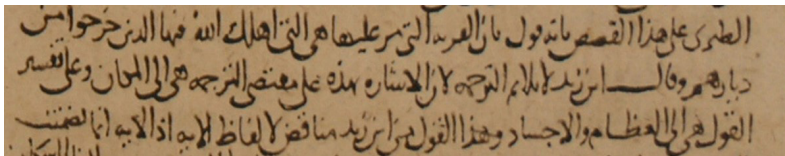 الطبري على هذا القصص بانه قول بان القريه التي مر عليها هي التي اهلك الله فيها الذين خرجوا من
ديارهم وقال ابن زيد لا يلايم الترجمه لان الاشاره بهذه على مقتضى الترجمه هي الى المكان وعلى تفسير
القول هي الى العظام والاجساد وهذا القول من ابن زيد مناقض لالفاظ الايه اذ الايه انما تضمنت